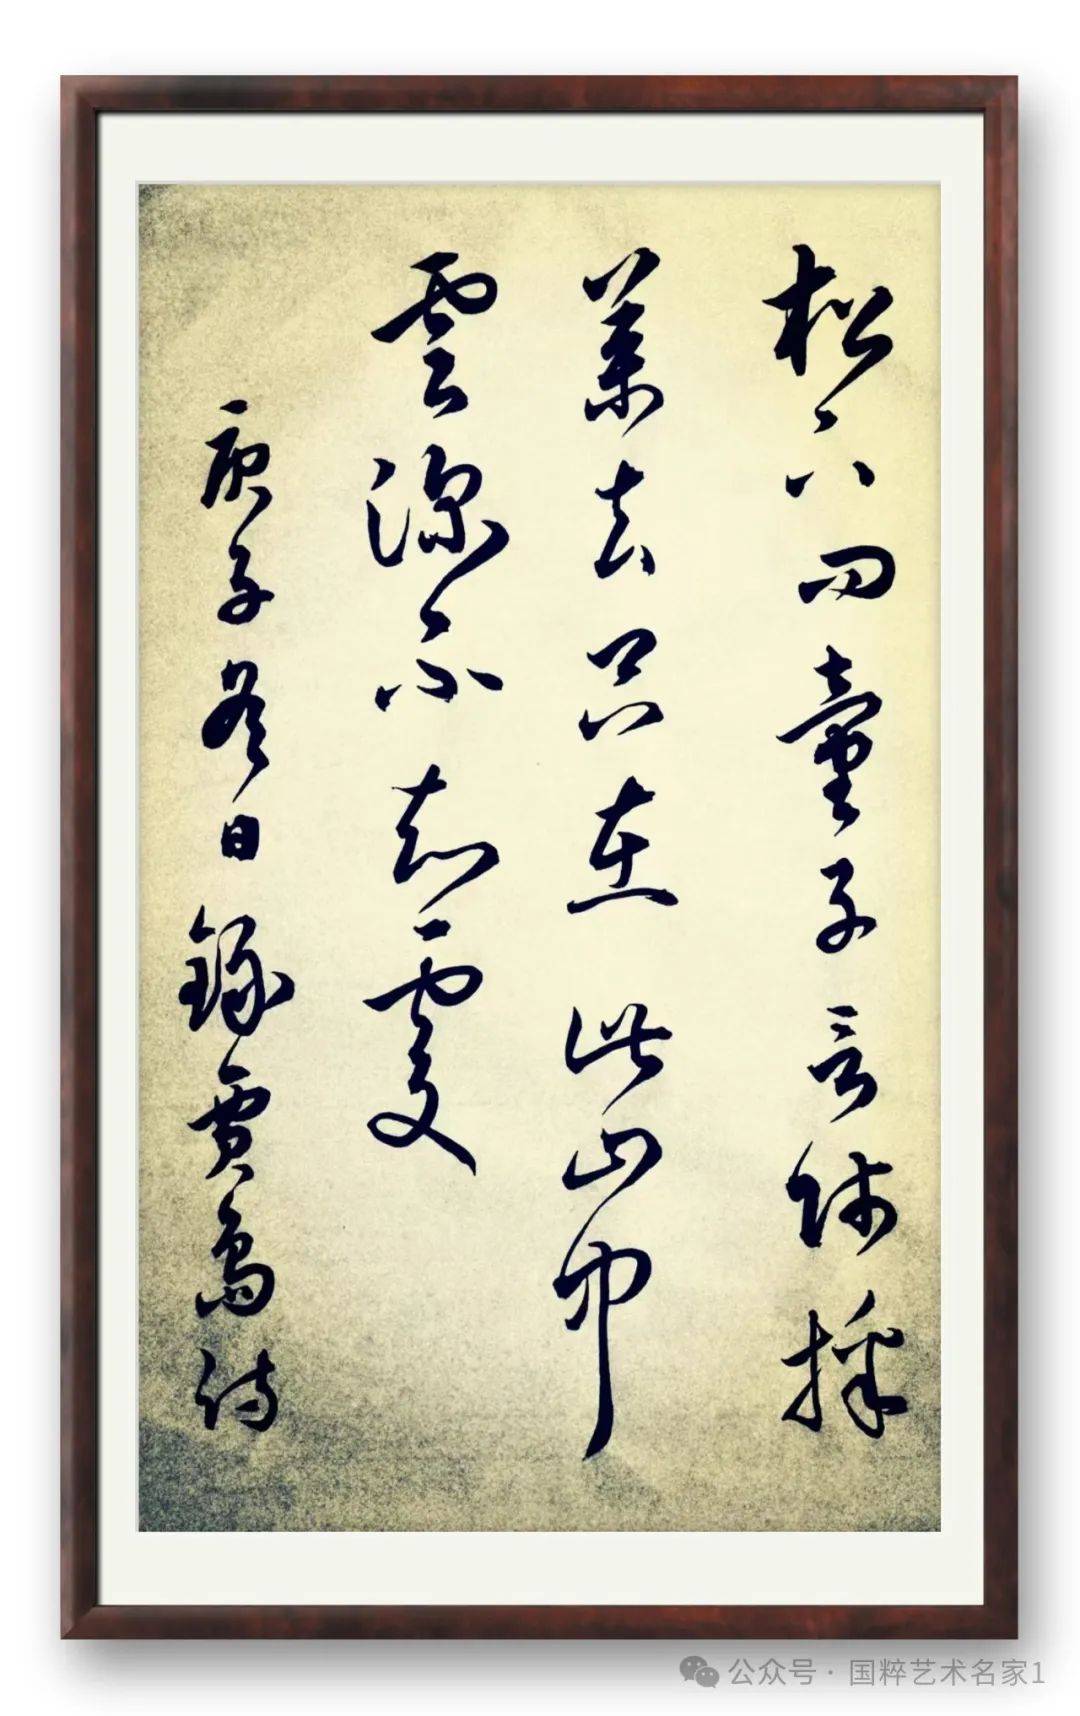 松下问童子言师採
药去只在此山中
雲深不知處
庚子冬日錄賈島诗
公众号 · 国粹艺术名家1